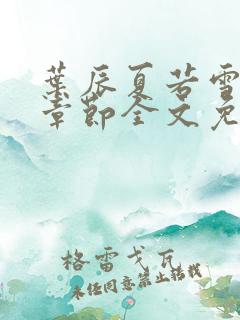 葉辰夏若雪
章節全文免
格雷戈瓦
未经同意禁止转载